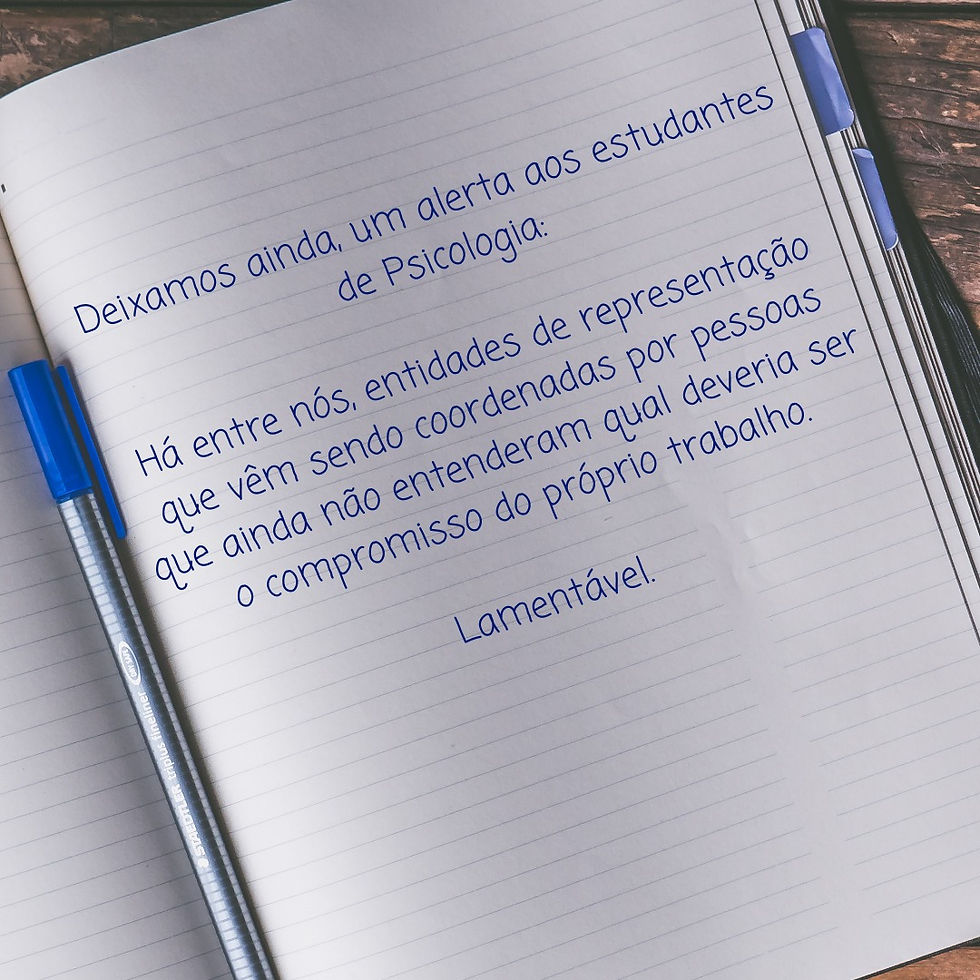 Deixamos ainda, um alerta aos estudantes
de Psicologia:
Há entre nós, entidades de representação
que vêm sendo coordenadas por pessoas
que ainda não entenderam qual deveria ser
o compromisso do próprio trabalho.
Lamentável.
STAEDTLER triplus fineliner